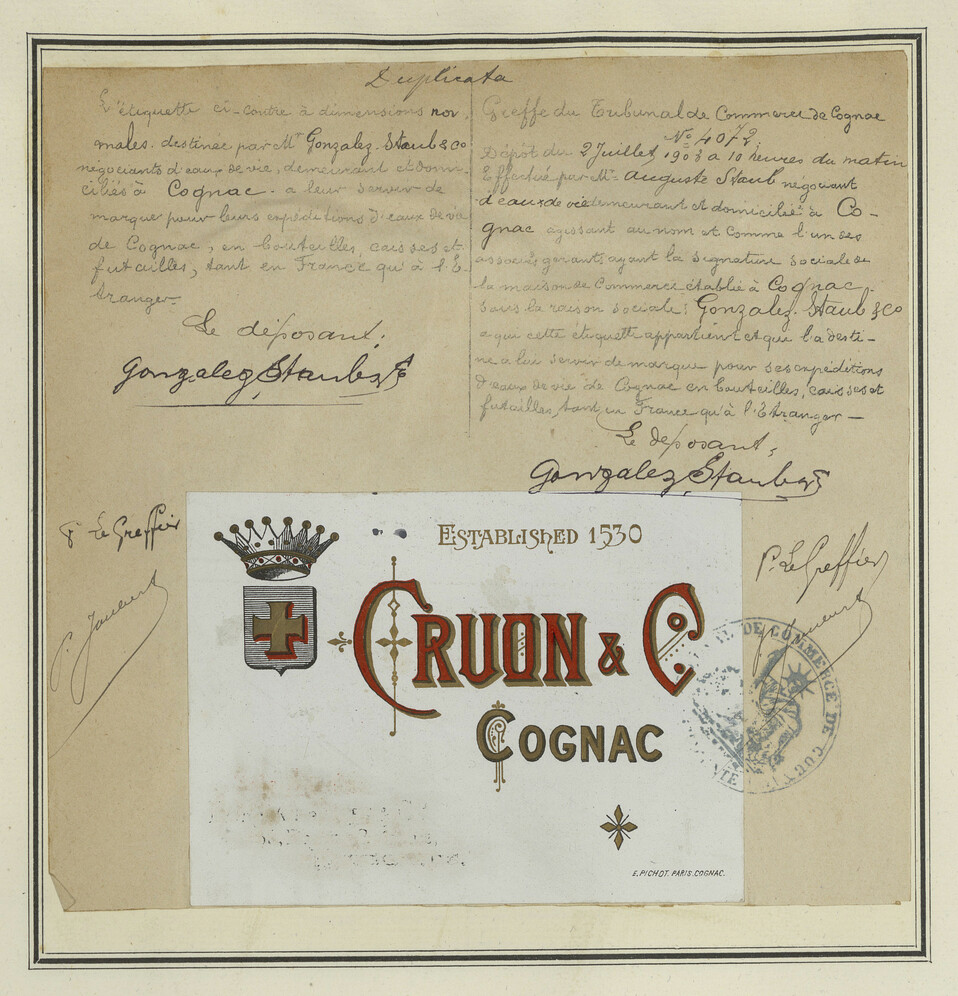 Duplicata
L'étiquette ci-contre à dimensions nor-
males destinée par Mr Gonzalez, Staub & Co
négociants d'eaux de vie, demeurant et domi-
ciliés à Cognac. a leur servir de
marque pour leurs expéditions d'eaux de vie
de Cognac, en bouteilles, caisses et
futailles, tant en France qu'à l'E-
tranger-
Le déposant,
Gonzalez, Staub & Co
Greffe du Tribunal de Commerce de Cognac
No 4072.
Dépôt du 2 Juillet 1908 à 10 heures du matin
Effectué par Mr Auguste Staub négociant
d'eaux de vie demeurant et domicilié à Co-
gnac agissant au nom et comme l'un des
associés gérants, ayant la signature sociale de
la maison de Commerce établie à Cognac,
sous la raison sociale: Gonzalez, Staub & Co
a qui cette étiquette appartient et qui l'a desti-
née a lui servir de marque pour ses expéditions
d'eaux de vie de Cognac en bouteilles, caisses et
futailles, tant en France qu'à l'Etranger —
Le déposant,
Gonzalez, Staub & Co
P. Le Greffier
P. Le Greffier
ESTABLISHED 1530
CRUON & Co
COGNAC
E. PICHOT. PARIS. COGNAC.
DE COMMERCE DE